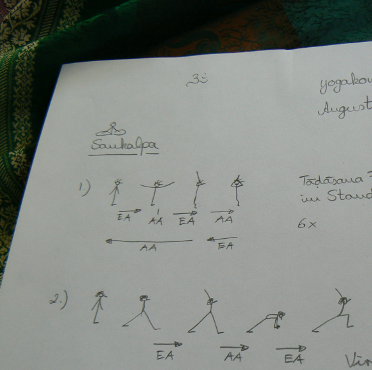 ॐ
yogakou
August
Sankalpa
1)
Tādāsana
im Stand
EA AA EA AA
6x
AA EA
2.)
EA AA EA
Vir